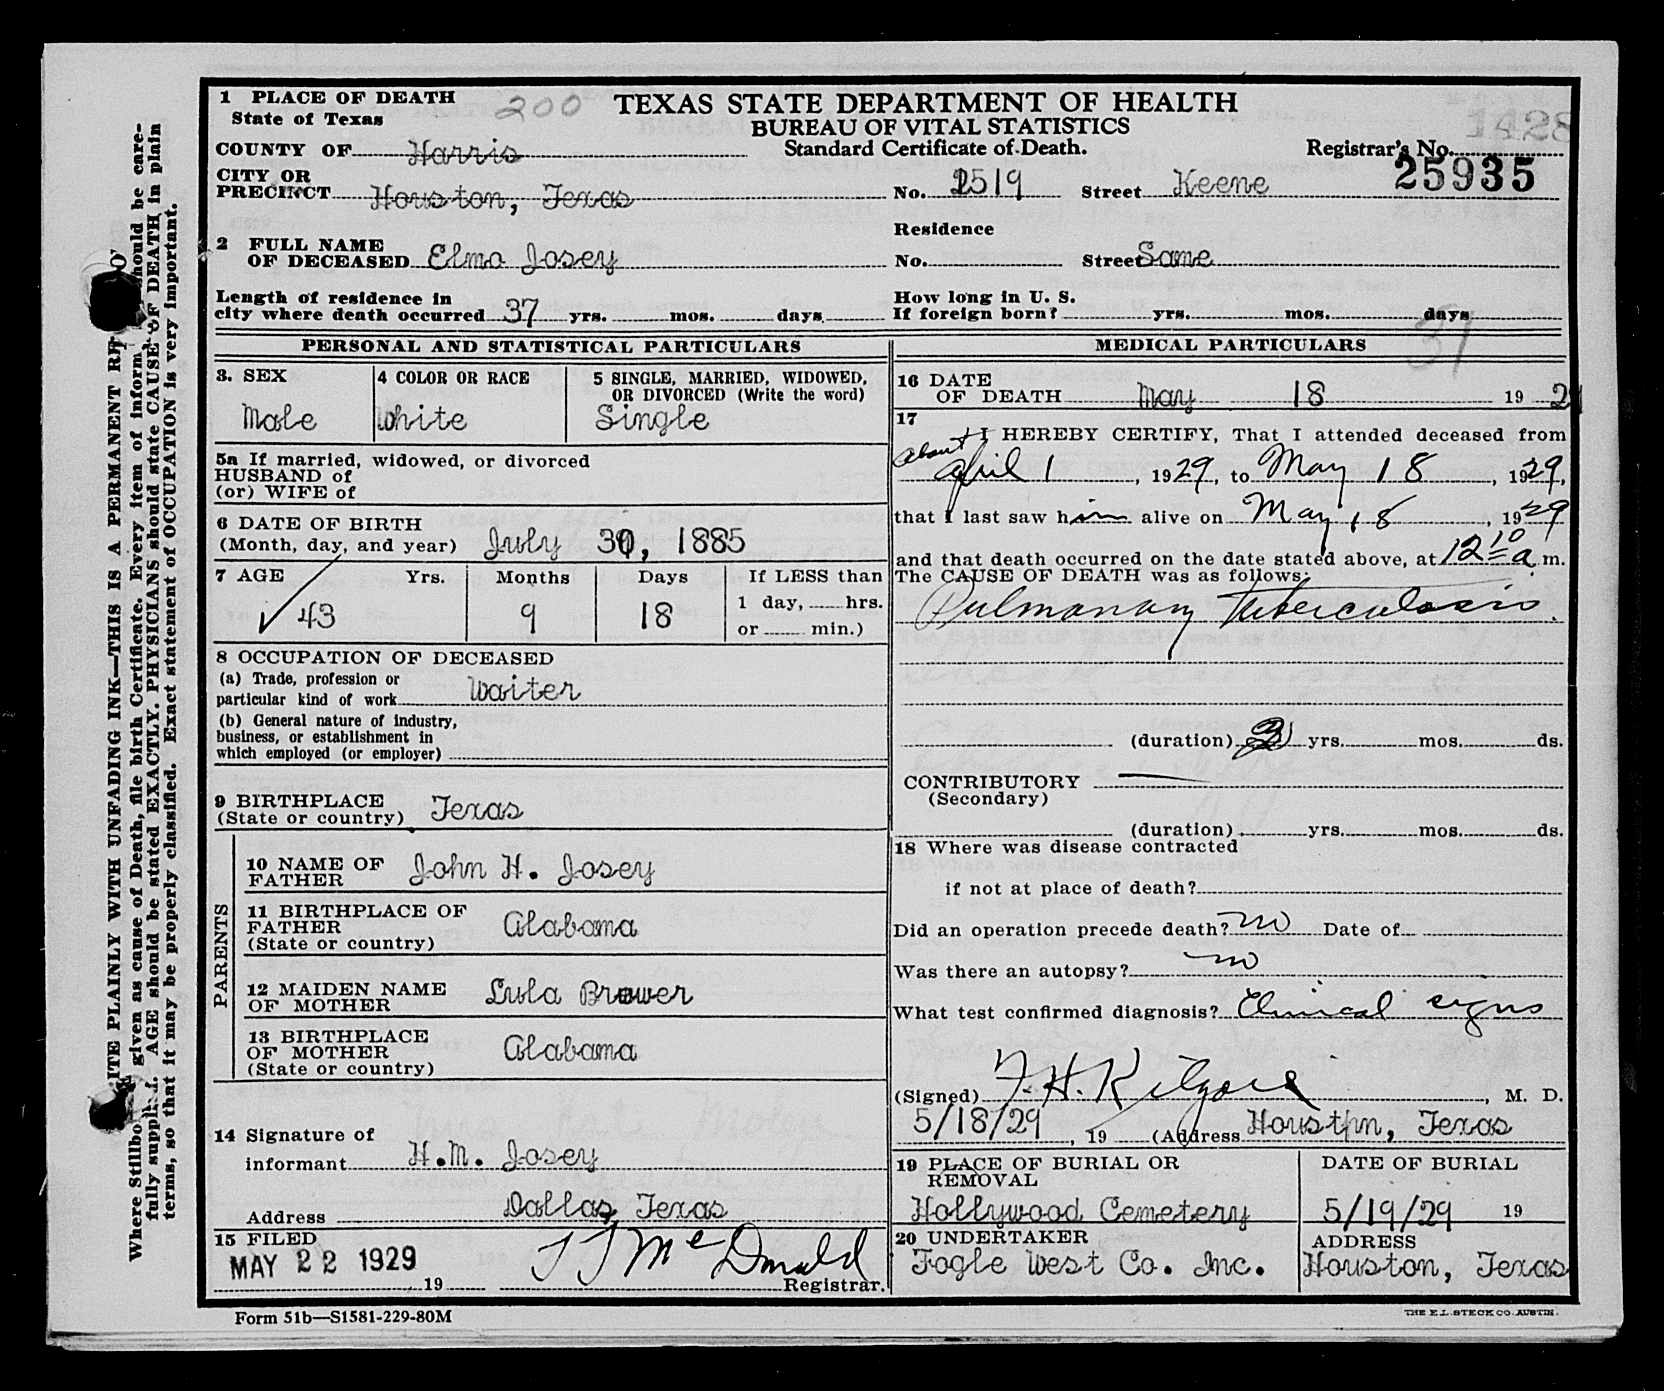 1 PLACE OF DEATH 200
State of Texas
TEXAS STATE DEPARTMENT OF HEALTH
BUREAU OF VITAL STATISTICS
Standard Certificate of Death.
1428
COUNTY OF Harris
Registrar's No. 25935
CITY OR
PRECINCT Houston, Texas
No. 2519 Street Keene
Residence
2 FULL NAME
OF DECEASED Elmo Josey
No. Street Same
Length of residence in
city where death occurred 37 yrs. mos. days
How long in U. S.
If foreign born? yrs. mos. days
31
PERSONAL AND STATISTICAL PARTICULARS
3. SEX
Male
4 COLOR OR RACE
White
5 SINGLE, MARRIED, WIDOWED,
OR DIVORCED (Write the word)
Single
5a If married, widowed, or divorced
HUSBAND of
(or) WIFE of
6 DATE OF BIRTH
(Month, day, and year) July 30, 1885
7 AGE Yrs. Months Days If LESS than
43 9 18 1 day, hrs.
or min.)
8 OCCUPATION OF DECEASED
(a) Trade, profession or
particular kind of work Waiter
(b) General nature of industry,
business, or establishment in
which employed (or employer)
9 BIRTHPLACE
(State or country) Texas
PARENTS
10 NAME OF
FATHER John H. Josey
11 BIRTHPLACE OF
FATHER
(State or country) Alabama
12 MAIDEN NAME
OF MOTHER Lula Brower
13 BIRTHPLACE
OF MOTHER
(State or country) Alabama
14 Signature of
informant H.M. Josey
Address Dallas, Texas
15 FILED
MAY 22 1929 19
T J McDonald
Registrar.
MEDICAL PARTICULARS
16 DATE
OF DEATH May 18 19 29
17
I HEREBY CERTIFY, That I attended deceased from
about April 1, 1929, to May 18, 1929,
that I last saw him alive on May 18, 1929
and that death occurred on the date stated above, at 12 10 a. m.
The CAUSE OF DEATH was as follows:
Pulmonary Tuberculosis.
(duration) yrs. mos. ds.
CONTRIBUTORY
(Secondary)
(duration) yrs. mos. ds.
18 Where was disease contracted
if not at place of death?
Did an operation precede death? no Date of
Was there an autopsy? no
What test confirmed diagnosis? Clinical signs
(Signed) F. H. Kilgore, M. D.
5/18/29, 19 (Address Houston, Texas
19 PLACE OF BURIAL OR
REMOVAL
Hollywood Cemetery
DATE OF BURIAL
5/19/29 19
20 UNDERTAKER
Fogle West Co. Inc.
ADDRESS
Houston, Texas
Form 51b—S1581-229-80M
THE E.L. STECK CO. AUSTIN.
ITE PLAINLY WITH UNFADING INK—THIS IS A PERMANENT RE
Where Stillbo given as cause of Death, file birth Certificate. Every item of inform should be care-
fully supplied. AGE should be stated EXACTLY. PHYSICIANS should state CAUSE OF DEATH in plain
terms, so that it may be properly classified. Exact statement of OCCUPATION is very important.